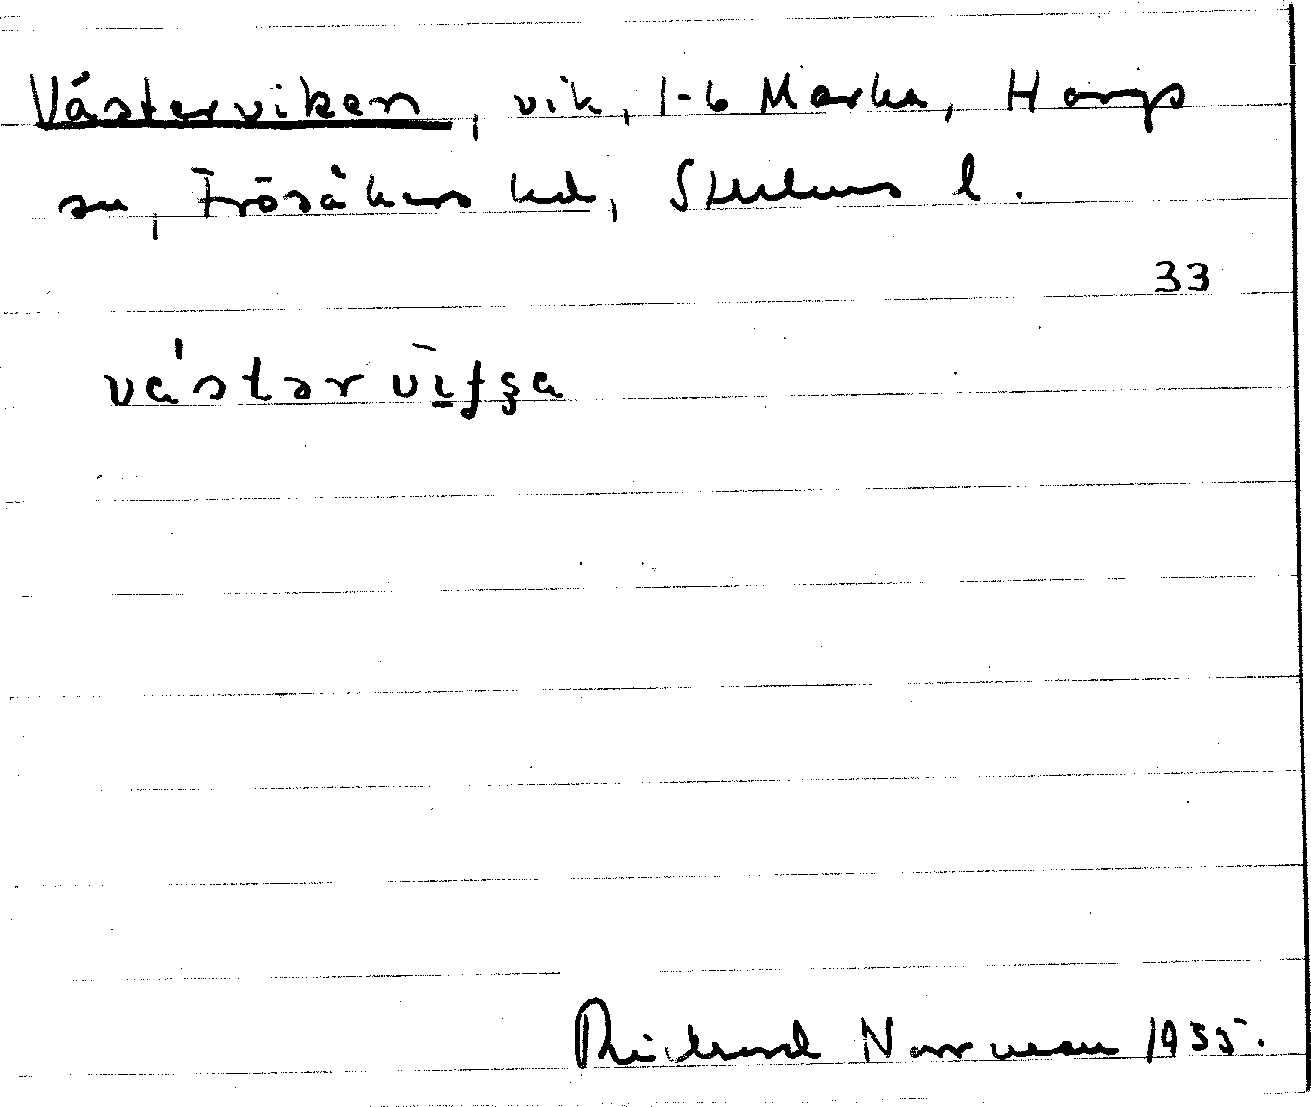 Västerviken, vik, 1-6 Marka, Hargs
sn, Frösåkers hd, Sthlms l.
33
västərvi̲fşa
Rickard Norrman 1935.